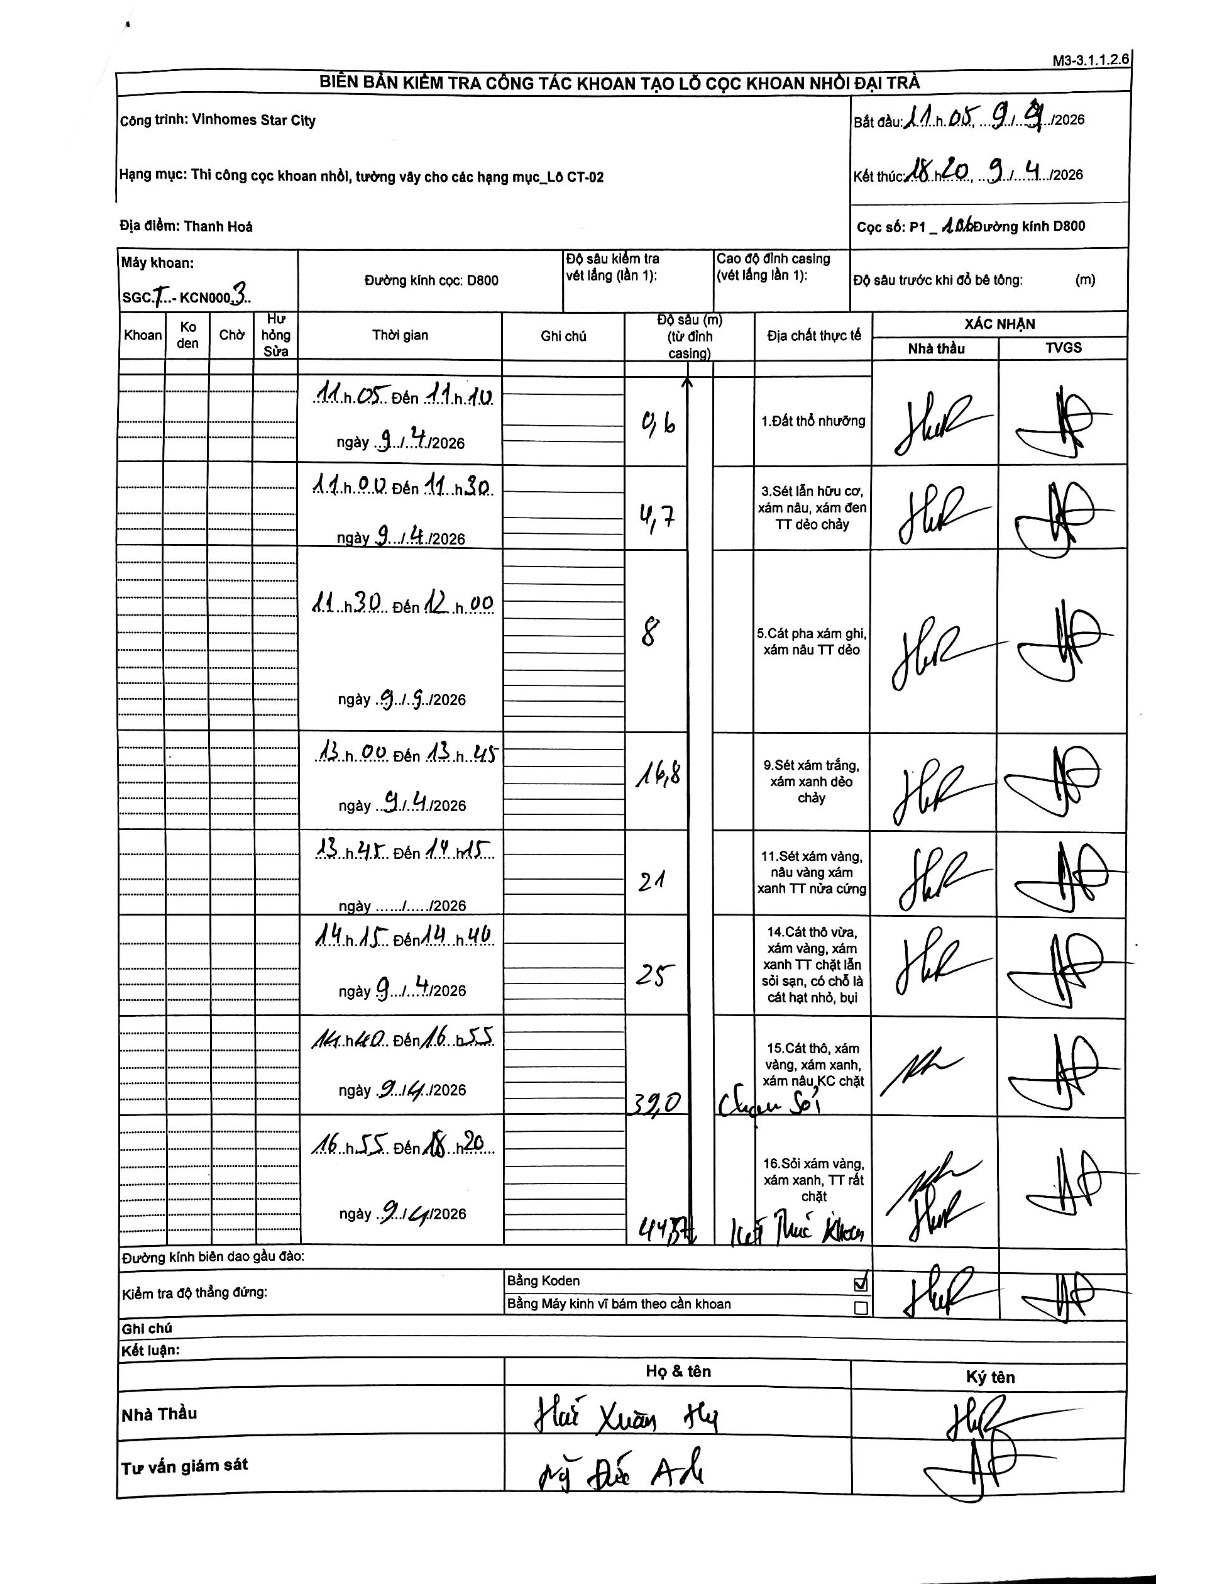 M3-3.1.1.2.6
BIÊN BẢN KIỂM TRA CÔNG TÁC KHOAN TẠO LỖ CỌC KHOAN NHỒI ĐẠI TRÀ
Công trình: Vinhomes Star City
Bắt đầu: 11.h.05, 9/4/2026
Hạng mục: Thi công cọc khoan nhồi, tường vây cho các hạng mục_Lô CT-02
Kết thúc: 18h20, 9/4/2026
Địa điểm: Thanh Hoá
Cọc số: P1 _ 106 Đường kính D800
Máy khoan:
SGC.T..- KCN0003..
Đường kính cọc: D800
Độ sâu kiểm tra
vét lắng (lần 1):
Cao độ đỉnh casing
(vét lắng lần 1):
Độ sâu trước khi đổ bê tông: (m)
Khoan
Ko
den
Chờ
Hư
hỏng
Sửa
Thời gian
Ghi chú
Độ sâu (m)
(từ đỉnh
casing)
Địa chất thực tế
XÁC NHẬN
Nhà thầu
TVGS
11.h.05.. Đến 11.h.10
ngày 9/4/2026
0,6
1.Đất thổ nhưỡng
11.h.00. Đến 11.h30
ngày 9/4/2026
4,7
3.Sét lẫn hữu cơ,
xám nâu, xám đen
TT dẻo chảy
11..h30.. Đến 12.h.00
ngày 9/9/2026
8
5.Cát pha xám ghi,
xám nâu TT dẻo
13.h..00. Đến 13.h..45
ngày 9/4/2026
16,8
9.Sét xám trắng,
xám xanh dẻo
chảy
13.h.45.. Đến 14.h15
ngày ....../...../2026
21
11.Sét xám vàng,
nâu vàng xám
xanh TT nửa cứng
14.h.15.. Đến 14.h.40
ngày 9/4/2026
25
14.Cát thô vừa,
xám vàng, xám
xanh TT chặt lẫn
sỏi sạn, có chỗ là
cát hạt nhỏ, bụi
14.h40.. Đến 16..h55
ngày 9/4/2026
39,0
15.Cát thô, xám
vàng, xám xanh,
xám nâu,KC chặt
Chạm Sỏi
16..h55.. Đến 18..h20
ngày 9/4/2026
16.Sỏi xám vàng,
xám xanh, TT rất
chặt
Kết Thúc Khoan
Đường kính biên dao gầu đào:
Kiểm tra độ thẳng đứng:
Bằng Koden ☑
Bằng Máy kinh vĩ bám theo cần khoan ☐
Ghi chú
Kết luận:
Họ & tên
Ký tên
Nhà Thầu
Xuân
Tư vấn giám sát
Đức Anh